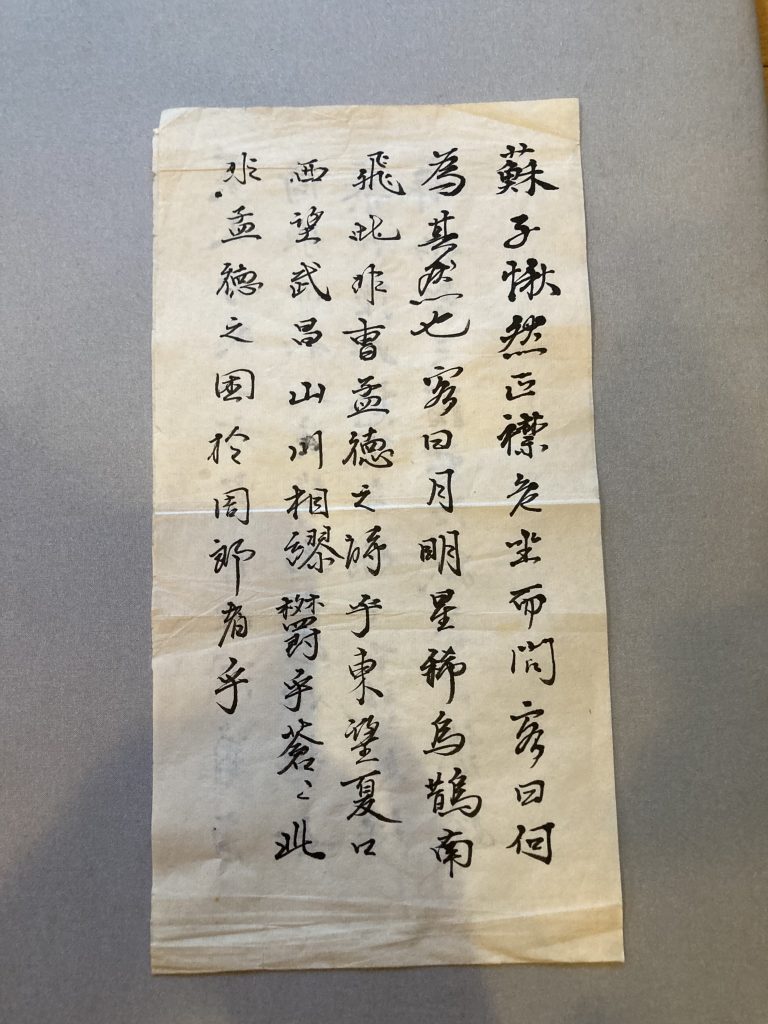 蘇子愀然正襟危坐而問客曰何
為其然也客曰月明星稀烏鵲南
飛此非曹孟德之時乎東望夏口
西望武昌山川相繆欝乎蒼〻此
非孟德之困於周郎者乎